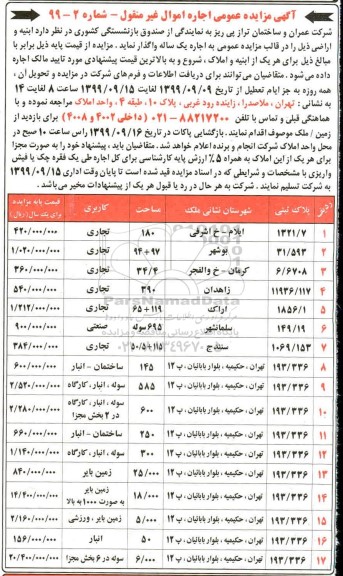 آگهی مزایده عمومی اجاره اموال غیر منقول – شماره ۲ – ۹۹
شرکت عمران و ساختمان تراز پی ریز به نمایندگی از صندوق بازنشستگی کشوری در نظر دارد ابنیه و
اراضی ذیل را در قالب مزایده عمومی به اجاره یک ساله واگذار نماید . مزایده از قیمت پایه ذیل برابر با
مبالغ ذیل برای هر یک از ابنیه و املاک ، شروع و به بالاترین قیمت پیشنهادی مورد تایید مالک اجاره
داده می‌شود . متقاضیان می‌توانند برای دریافت اطلاعات و فرم‌های شرکت در مزایده و تحویل آن ،
همه روزه به جز ایام تعطیل از تاریخ ۱۳۹۹/۰۹/۰۹ لغایت ۱۳۹۹/۰۹/۱۵ ساعت ۸ لغایت ۱۴
به نشانی : تهران ، ملاصدرا ، زاینده رود غربی ، پلاک ۱۰ ، طبقه ۴ ، واحد املاک مراجعه نموده و با
هماهنگی قبلی و تماس با تلفن ۸۸۲۱۷۲۰۰ – ۰۲۱ ( داخلی ۴۰۰۲ و ۴۰۰۸ ) برای بازدید از
زمین / ملک موصوف اقدام نمایند . بازگشایی پاکات در تاریخ ۱۳۹۹/۰۹/۱۶ راس ساعت ۱۰ صبح در
محل واحد املاک شرکت انجام و برنده اعلام خواهد شد . متقاضیان باید ، پیشنهاد خود را به صورت مجزا
برای هر یک از این املاک به همراه ۵٪ ارزش پایه کارشناسی برای کل اجاره طی یک فقره چک یا فیش
واریزی با مشخصات و شرایطی که در اسناد مزایده قید شده است تا پایان وقت اداری ۱۳۹۹/۰۹/۱۵
به شرکت تسلیم نمایند . شرکت به هر حال در رد یا قبول هر یک از پیشنهادات مخیر می‌باشد .
پلاک ثبتی شهرستان نشانی ملک مساحت کاربری قیمت پایه مزایده برای یک سال (ریال)
۱ ۱۳۲۱/۷ ایلام – خ اشرفی ۱۸۰ تجاری ۴۲۰/۰۰۰/۰۰۰
۲ ۳۱/۵۹۳ بوشهر ۹۴+۹۷ تجاری ۱/۰۲۰/۰۰۰/۰۰۰
۳ ۶/۶۷۰۸ کرمان – خ والفجر ۳۴/۴ تجاری ۳۶۰/۰۰۰/۰۰۰
۴ ۱۱۹۳۶/۱۱۷ زاهدان ۳۹۰ تجاری ۵۴۰/۰۰۰/۰۰۰
۵ ۱۸۵۶/۱ اراک ۶۵+۱۱۹ تجاری ۱/۲۱۲/۰۰۰/۰۰۰
۶ ۱۴۹/۱۹ سلمانشهر ۶۹۵ سوله صنعتی ۹۰۰/۰۰۰/۰۰۰
۷ ۱۰۶۹/۱۵۳ سنندج ۵۰/۵+۱۱۵ تجاری ۳۸۴/۰۰۰/۰۰۰
۸ ۱۹۳/۳۳۶ تهران ، حکیمیه ، بلوار بابائیان ، پ ۱۲ ۱۴۵ ساختمان – انبار ۶۰۰/۰۰۰/۰۰۰
۹ ۱۹۳/۳۳۶ تهران ، حکیمیه ، بلوار بابائیان ، پ ۱۲ ۵۸۵ سوله ، انبار ، کارگاه ۲/۵۲۰/۰۰۰/۰۰۰
۱۰ ۱۹۳/۳۳۶ تهران ، حکیمیه ، بلوار بابائیان ، پ ۱۲ ۶۰۰ سوله ، انبار ، کارگاه در ۲ بخش مجزا ۲/۲۸۰/۰۰۰/۰۰۰
۱۱ ۱۹۳/۳۳۶ تهران ، حکیمیه ، بلوار بابائیان ، پ ۱۲ ۲۵۰ ساختمان – انبار ۶۶۰/۰۰۰/۰۰۰
۱۲ ۱۹۳/۳۳۶ تهران ، حکیمیه ، بلوار بابائیان ، پ ۱۲ ۳۰۰ سوله ، انبار ، کارگاه ۱/۱۴۰/۰۰۰/۰۰۰
۱۳ ۱۹۳/۳۳۶ تهران ، حکیمیه ، بلوار بابائیان ، پ ۱۲ ۲۵/۰۰۰ زمین بایر ۸۴۰/۰۰۰/۰۰۰
۱۴ ۱۹۳/۳۳۶ تهران ، حکیمیه ، بلوار بابائیان ، پ ۱۲ ۱۸/۰۰۰ زمین بایر به صورت ۱۰۰۰ به بالا ۱۴/۴۰۰/۰۰۰/۰۰۰
۱۵ ۱۹۳/۳۳۶ تهران ، حکیمیه ، بلوار بابائیان ، پ ۱۲ ۵/۰۰۰ زمین بایر ، ورزشی ۲/۱۶۰/۰۰۰/۰۰۰
۱۶ ۱۹۳/۳۳۶ تهران ، حکیمیه ، بلوار بابائیان ، پ ۱۲ ۵۰ انبار ۱۵۶/۰۰۰/۰۰۰
۱۷ ۱۹۳/۳۳۶ تهران ، حکیمیه ، بلوار بابائیان ، پ ۱۲ ۶/۰۰۰ سوله در ۶ بخش مجزا ۲۰/۴۰۰/۰۰۰/۰۰۰